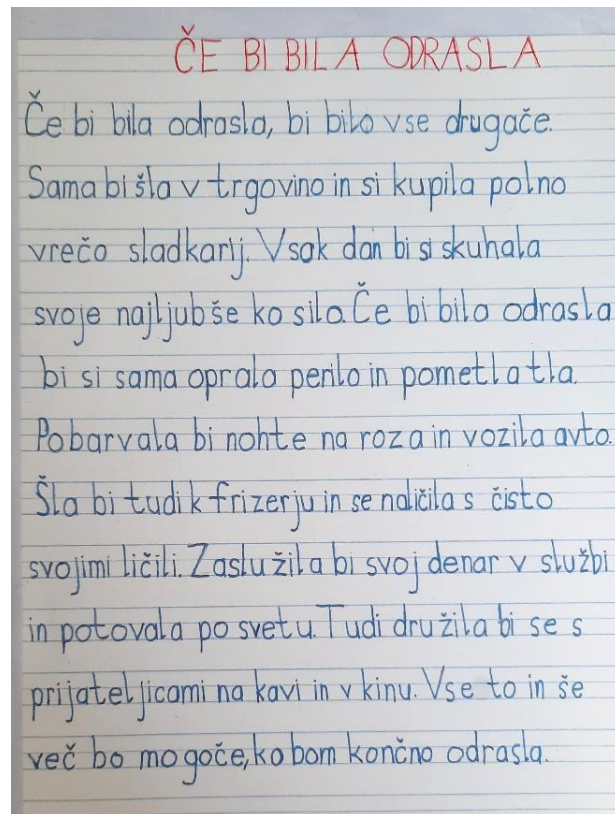 ČE BI BILA ODRASLA
Če bi bila odrasla, bi bilo vse drugače.
Sama bi šla v trgovino in si kupila polno
vrečo sladkarij. Vsak dan bi si skuhala
svoje najljubše kosilo. Če bi bila odrasla
bi si sama oprala perilo in pometla tla.
Pobarvala bi nohte na roza in vozila avto.
Šla bi tudi k frizerju in se naličila s čisto
svojimi ličili. Zaslužila bi svoj denar v službi
in potovala po svetu. Tudi družila bi se s
prijateljicami na kavi in v kinu. Vse to in še
več bo mogoče, ko bom končno odrasla.